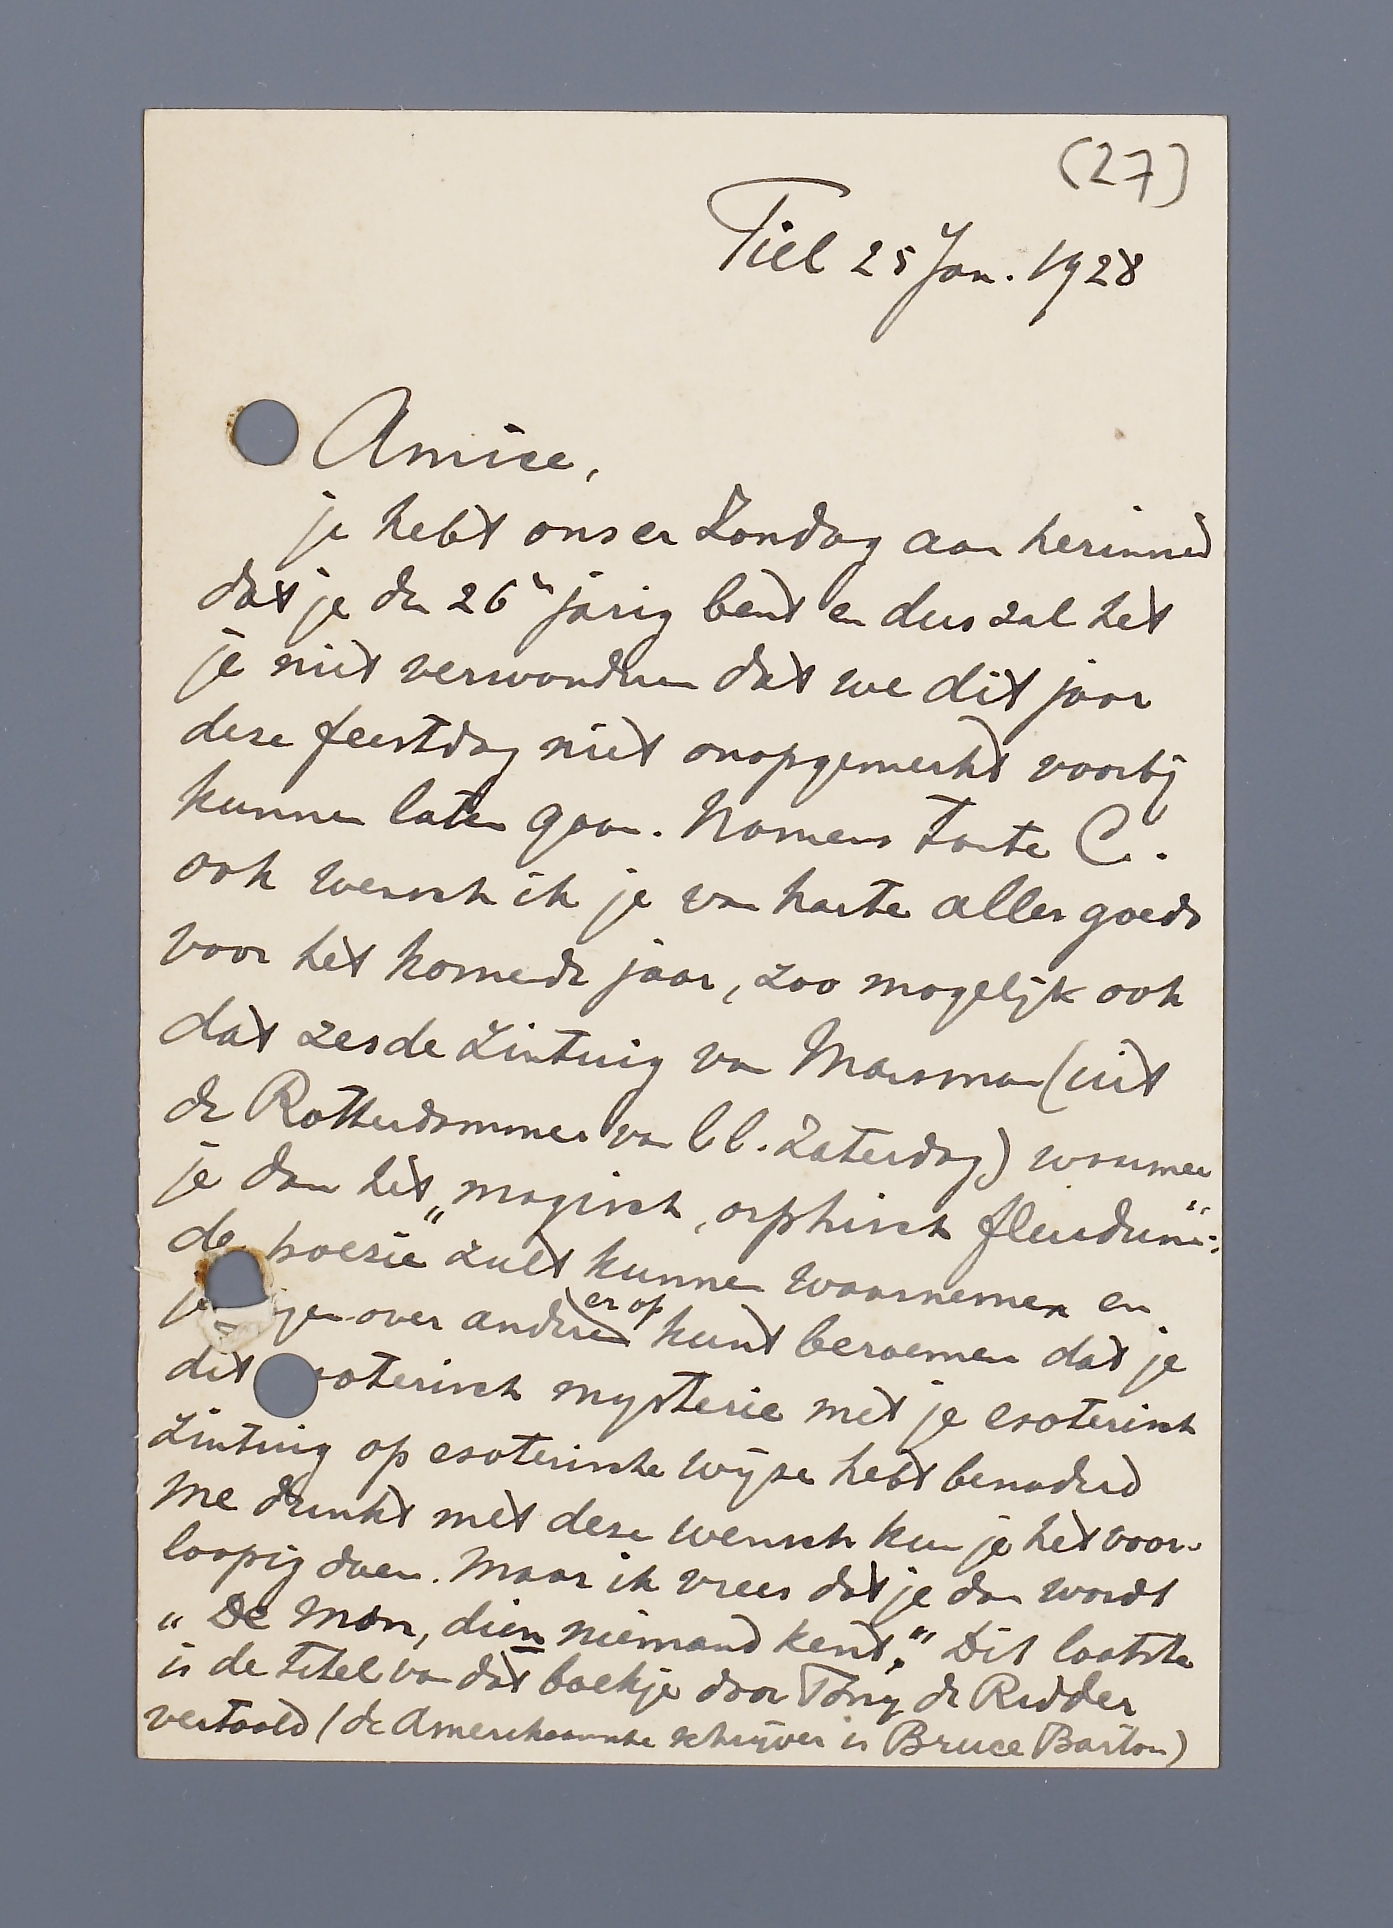 (27)
Tiel 25 Jan. 1928
Amice,
je hebt ons er Zondag aan herinnerd
dat je den 26n jarig bent en dus zal het
je niet verwonderen dat we dit jaar
deze feestdag niet onopgemerkt voorbij
kunnen laten gaan. Namens Tante C.
ook wensch ik je van harte alles goeds
voor het komende jaar, zoo mogelijk ook
dat zesde Zintuig van Marsman (uit
de Rotterdammer van l.l. Zaterdag) waarmee
je dan het „magisch, orphisch fluidum"
de poesie zult kunnen waarnemen en
je over anderen er op kunt beroemen dat je
dit esoterisch mysterie met je esoterisch
Zintuig op esoterische wijze hebt benaderd
Me dunkt met deze wensch kun je het voor-
loopig doen. Maar ik vrees dat je dan wordt
„De Man, dien niemand kent." Dit laatste
is de titel van dat boekje door Tony de Ridder
vertaald (de Amerikaansche schrijver is Bruce Barton)